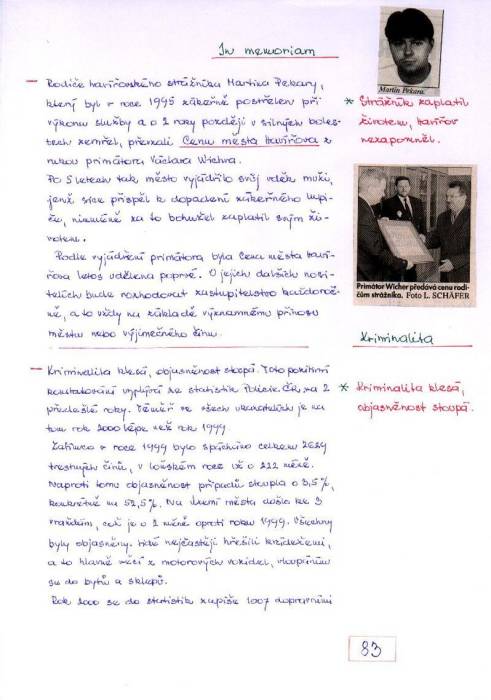 In memoriam
Martin Pekara.
– Rodiče havířovského strážníka Martina Pekary,
který byl v roce 1995 zákeřně postřelen při
výkonu služby a o 2 roky později v silných boles-
tech zemřel, převzali Cenu města Havířova z
rukou primátora Václava Wichra.
Po 5 letech tak město vyjádřilo svůj vděk muži,
jenž sice přispěl k dopadení zákeřného lupi-
če, nicméně za to bohužel zaplatil svým ži-
votem.
* Strážník zaplatil
životem, Havířov
nezapomněl.
Podle vyjádření primátora byla Cena města Haví-
řova letos udělena poprvé. O jejích dalších nosi-
telích bude rozhodovat zastupitelstvo každoroč-
ně, a to vždy na základě významného přínosu
městu nebo výjimečného činu.
Primátor Wicher předává cenu rodi-
čům strážníka. Foto L. SCHÄFER
Kriminalita
– Kriminalita klesá, objasněnost stoupá. Toto pozitivní
konstatování vyplývá ze statistik Policie ČR za 2
předešlé roky. Téměř ve všech ukazatelích je na
tom rok 2000 lépe než rok 1999.
* Kriminalita klesá,
objasněnost stoupá.
Zatímco v roce 1999 bylo spácháno celkem 2689
trestných činů, v loňském roce už o 222 méně.
Naproti tomu objasněnost případů stoupla o 3,5%,
konkrétně na 52,5%. Na území města došlo ke 3
vraždám, což je o 2 méně oproti roku 1999. Všechny
byly objasněny. Lidé nejčastěji hřešili krádežemi,
a to hlavně věcí z motorových vozidel, vloupáním
se do bytů a sklepů.
Rok 2000 se do statistik zapíše 1007 dopravními
83